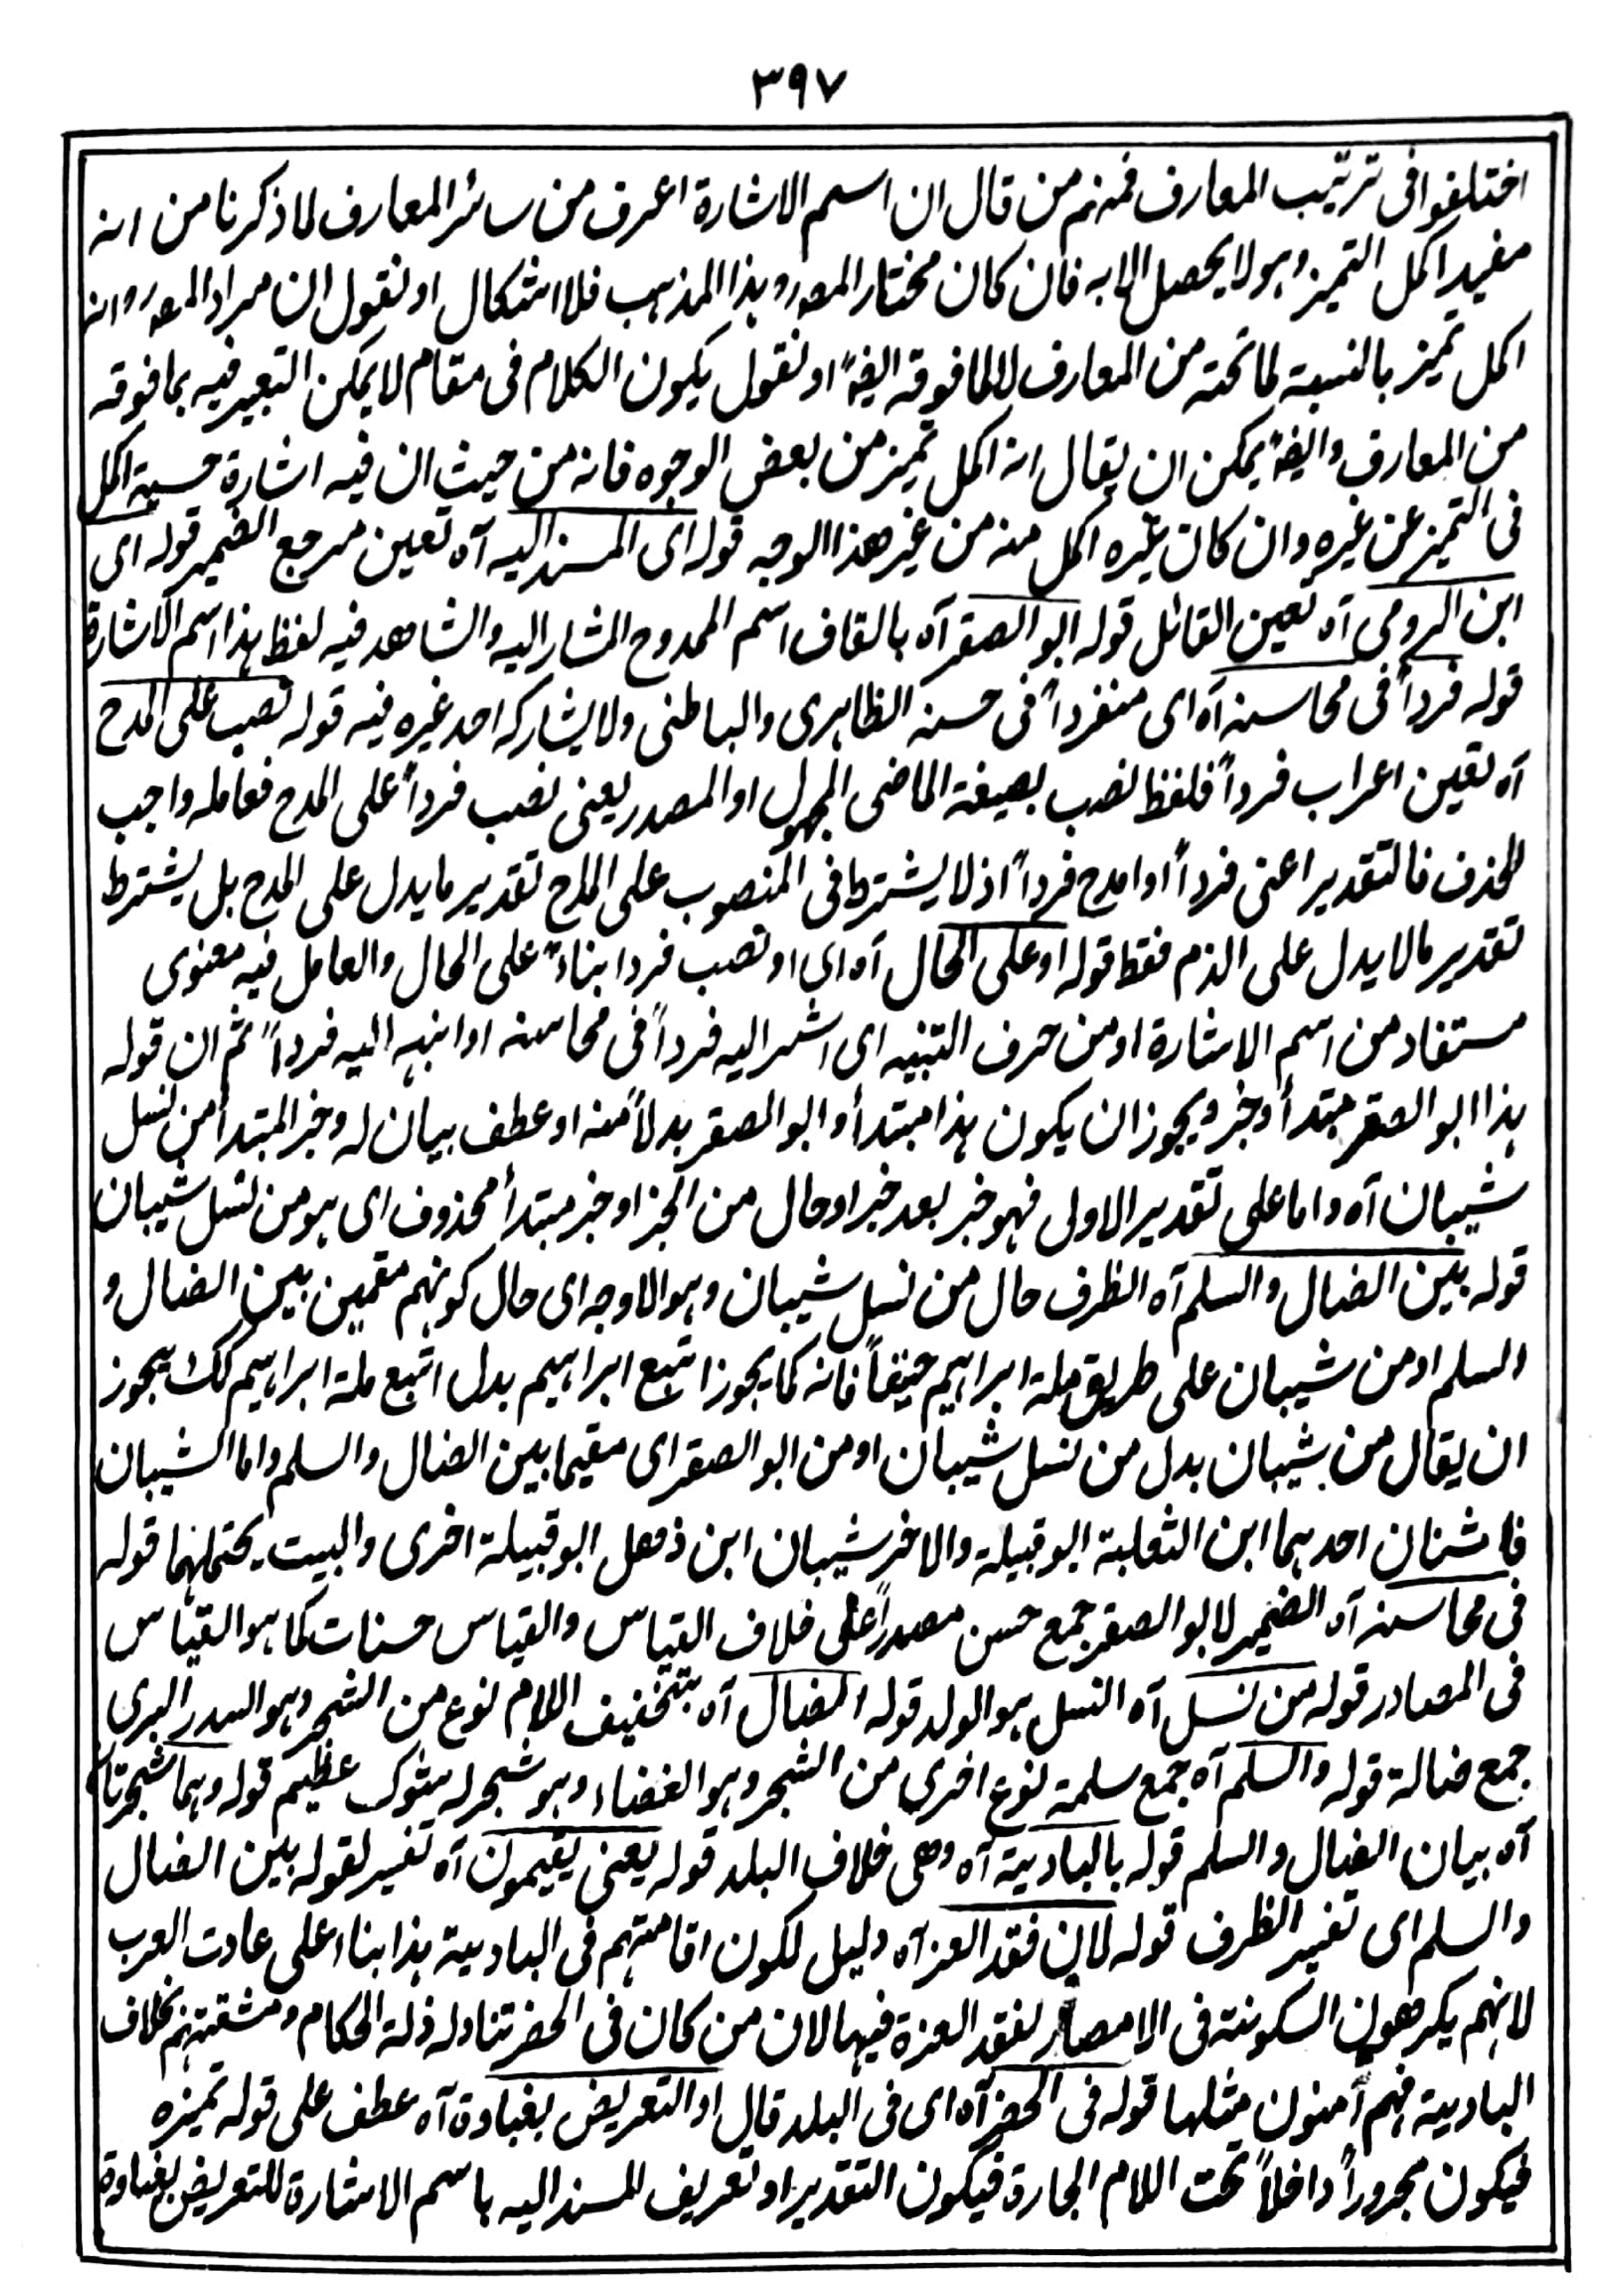 ٣٩٧
اختلفوا فى ترتيب المعارف فمنهم من قال ان اسم الاشارة اعرف من سائر المعارف لما ذكرنا من انه
مفيد اكمل التميز وهو لا يحصل الا به فان كان مختار المصر وهذا المذهب فلا اشكال او نقول ان مراد المصر وانه
اكمل تميز بالنسبة لما تحته من المعارف لا لما فوقه ايضاً او نقول يكون الكلام فى مقام لا يمكن التعبير فيه بما فوقه
من المعارف وايضاً يمكن ان يقال انه اكمل تميز من بعض الوجوه فانه من حيث ان فيه اشارة حسية اكمل
فى التميز عن غيره وان كان غيره اكمل منه من غير هذا الوجه قوله اى المسند اليه آه تعين مرجع الضمير قوله اى
ابن الرومى آه تعين القائل قوله ابو الصقر آه بالقاف اسم الممدوح المشار اليه والشاهد فيه لفظ هذا اسم الاشارة
قوله فرداً فى محاسنه آه اى منفرداً فى حسنه الظاهرى والباطنى ولا يشاركه احد غيره فيه قوله نصب على المدح
آه تعين اعراب فرداً فلفظ نصب بصيغة الماضى المجهول او المصدر يعنى نصب فرداً على المدح فعامله واجب
الحذف فالتقدير اعنى فرداً او امدح فرداً اذ لا يشترط فى المنصوب على المدح تقدير ما يدل على المدح بل يشترط
تقدير ما لا يدل على الذم فقط قوله او على الحال آه اى او نصب فردا بناءً على الحال والعامل فيه معنوى
مستفاد من اسم الاشارة او من حرف التنبيه اى اشير اليه فرداً فى محاسنه او انبه اليه فرداً ثم ان قوله
هذا ابو الصقر مبتدأ وخبر ويجوز ان يكون هذا مبتدأ وابو الصقر بدلاً منه او عطف بيان له وخبر المبتدأ من نسل
شيبان آه واما على تقدير الاولى فهو خبر بعد خبر او حال من الخبر او خبر مبتدأ محذوف اى هو من نسل شيبان
قوله بين الضال والسلم آه الظرف حال من نسل شيبان وهو الاوجه اى حال كونهم مقمين بين الضال و
السلم او من شيبان على طريق ملة ابراهيم حنيفاً فانه كما يجوز اتبع ابراهيم بدل اتبع ملة ابراهيم كك يجوز
ان يقال من شيبان بدل من نسل شيبان او من ابو الصقر اى مقيما بين الضال والسلم واما الشيبان
فاثنان احدهما ابن الثعلبة ابو قبيلة والاخر شيبان ابن ذهل ابو قبيلة اخرى والبيت يحتملهما قوله
فى محاسنه آه الضمير لابو الصقر جمع حسن مصدراً على خلاف القياس والقياس حسنات كما هو القياس
فى المصادر قوله من نسل آه النسل هو الولد قوله الضال آه بتخفيف اللام نوع من الشجر وهو السدر البرى
جمع ضالة قوله والسلم آه جمع سلمة نوع اخرى من الشجر وهو الغضاء وهو شجر له شوك عظيم قوله وهما شجرتان
آه بيان الضال والسلم قوله بالبادية آه وهى خلاف البلد قوله يعنى يقيمون آه تفسير لقوله بين الضال
والسلم اى تفسير الظرف قوله لان فقد العز آه دليل لكون اقامتهم فى البادية هذا بناء على عادت العرب
لانهم يكرهون السكونة فى الامصار لفقد العزة فيها لان من كان فى الحضر تناوله ذلة الحكام ومشقتهم بخلاف
البادية فهم آمنون مثلها قوله فى الحضر آه اى فى البلد قال او التعريض بغباوة آه عطف على قوله تميزه
فيكون مجروراً داخلاً تحت اللام الجارة فيكون التقدير او تعريف المسند اليه باسم الاشارة للتعريض بغباوة